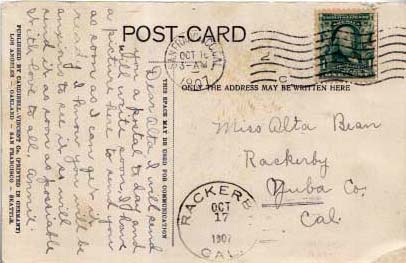 POST CARD
ONLY THE ADDRESS MAY BE WRITTEN HERE
THIS SPACE MAY BE USED FOR COMMUNICATION
PUBLISHED BY CARDINELL-VINCENT CO. (PRINTED IN GERMANY)
LOS ANGELES - OAKLAND - SAN FRANCISCO - SEATTLE
OCT 16
1907
Dear Alta I will send
you a postal to day and
will write soon, I have
a picture here to send you
as soon as I can get it
ready I know you will be
anxious to see it as will
send it as soon as possiable
With love to all. Annie.
Miss Alta Bean
Rackerby
Yuba Co.
Cal.
RACKERBY
OCT
17
1907
CAL.